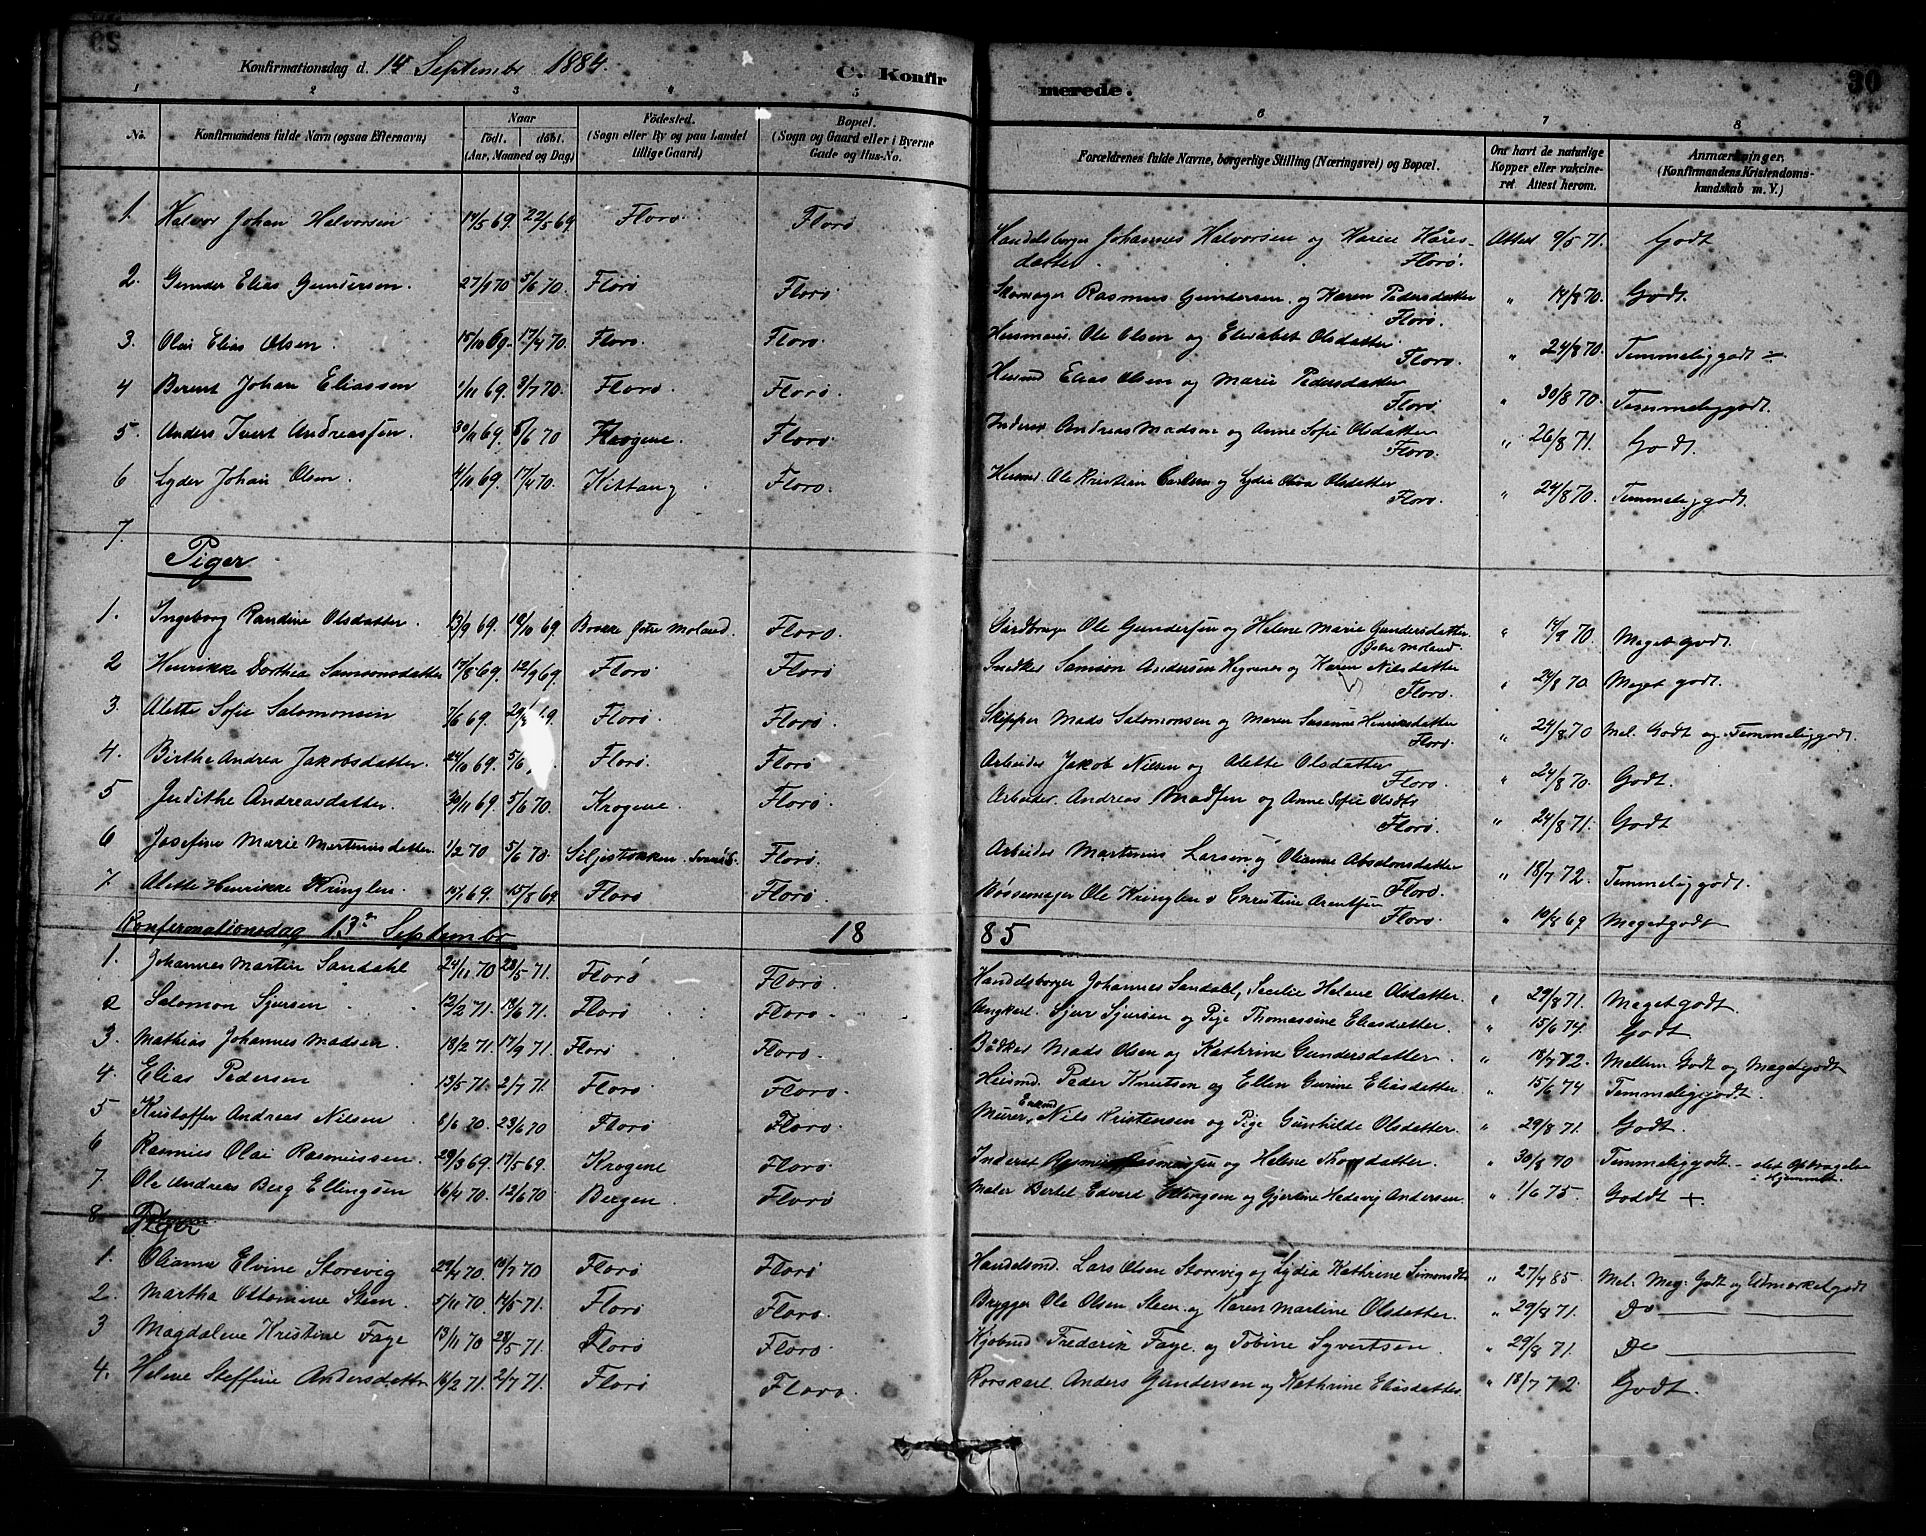 Konfirmationsdag d. 14 September 1884. C. Konfirmerede. 30
1 2 3 4 5 6 7 8
No. Konfirmandens fulde Navn (ogsaa Efternavn) Naar født. døbt. (Aar, Maaned og Dag) Fødested. (Sogn eller By og paa Landet tillige Gaard) Bopæl. (Sogn og Gaard eller i Byerne Gade og Hus-No. Forældrenes fulde Navne, borgerlige Stilling (Næringsvei) og Bopæl. Om havt de naturlige Kopper eller vakcineret Attest herom. Anmærkninger. (Konfirmandens Kristendomskundskab m. V.)
1. Halvor Johan Halvorsen 22/5 69 Florø Florø Handelsborger Johannes Halvorsen og Karen datter Florø. Attest 71. Godt
2. Gunder Elias Gundersen. 5/6 70. Florø Florø Skomager Rasmus Gundersen og Karen Pedersdatter Florø. " 14/8 70. Godt.
3. Olai Elias Olsen. 15/10 69. 17/4 70. Florø. Florø. Husmand Ole Olsen og Elisabet Olsdatter Florø. " 24/8 70. Temmeliggodt
4 Berent Johan Eliassen 1/11 69. 3/7 70. Florø. Florø. Husmd Elias Olsen og Marie Pedersdatter Florø " 30/8 70. Temmeliggodt.
5. Anders Ivert Andreassen. 30/11 69. 5/6 70 Krogene. Florø. Inderst Andreas Madsen og Anne Sofie Olsdatter Florø. " 26/8 71. Godt.
6 Lyder Johan Olsen. 69. 17/4 70. Kittang Florø. Husmd. Ole Kristian Carlsen og Lydie Olava Olsdatter Florø. " 24/8 70. Temmeliggodt.
7.
Piger
1. Ingeborg Randine Olsdatter. 13/9 69. 10/10 69. Botnene Indre Moland. Florø. Gårdbruger Ole Gundersen og Helene Marie Gundersdatter Indre Moland " 14/9 70. Meget godt.
2 Henrikke Dorthea Samsonsdatter 17/8 69. 12/9 69. Florø Florø. Snedker Samson Andersen Hegrenes og Karen Nilsdatter Florø. " 24/8 70. Meget godt.
3. Alette Sofie Salomonsen 7/6 69. Florø. Florø. Skipper Mads Salomonsen og Maren Susanne Henriksdatter Florø. " 24/8 70 Mel. Godt og Temmeliggodt.
4. Birthe Andrea Jakobsdatter. 24/10 69. 5/6 Florø. Florø. Arbeider Jakob Nilsen og Alette Olsdatter Florø. " 24/8 70. Godt.
5 Judithe Andreasdatter. 30/11 69. 5/6 70. Krogene. Florø. Arbeider. Andreas Madsen og Anne Sofie Olsdtr Florø. " 24/8 71. Godt
6 Josefine Marie Martinusdatter. 1/2 70 5/6 70. Siljestokken. Florø. Arbeider Martinius Larsen og Olianne Absalonsdatter Florø. " 18/7 72. Temmeliggodt.
7. Alette Henrikke Kringlen. 69. 15/8 69. Florø Florø. Bøssemager Ole Kringlen o Christine Arentsen Florø. " 10/8 69 Megetgodt
Konfirmationsdag 13de September 1885
1. Johannes Martin Sandahl 24/11 70 28/5 71. Florø Florø. Handelsborger Johannes Sandahl, Secilie Helene Olsdatter. " 29/8 71. Megetgodt.
2 Salomon Sjursen 12/2 71. 18/6 71. Florø Florø. Ungkarl. Sjur Sjursen og Pige Thomassine Eliasdatter. " 15/6 74. Godt.
3. Mathias Johannes Madsen. 18/2 71. 17/9 71. Florø Florø. Bødker Mads Olsen og Kathrine Gundersdatter. " 18/7 72. Mellem Godt og Megetgodt
4. Elias Pedersen 13/5 71. 2/7 71. Florø Florø. Husmd. Peder Knutsen og Ellen Gurine Eliasdatter. " 15/6 74 Temmeliggodt.
5 Kristoffer Andreas Nilsen 6/6 70. 23/6 70 Florø Florø. Murer, Enkemd Nils Kristensen og Pige Gunhilde Olsdatter. " 29/8 71. Godt.
6 Rasmus Olai Rasmussen. 29/3 69. 17/5 69. Krogene Florø. Inderst Rasmus Rasmussen og Helene Thorsdatter. " 30/8 70 Temmeliggodt. - slet Opdragelse i Hjemmet.
7 Ole Andreas Berg Ellingsen 16/4 70. 12/6 70. Bergen Florø Maler Bertel Edvard Ellingsen og Gjertine Hedevig Andersen. " 1/6 75. Godt +
8. Piger
1. Olianne Elvine Storevig 29/4 70. 10/7 70 Florø Florø Handelsmd. Lars Olsen Storevig og Lydia Kathrine Simonsdtr " 27/4 85. Mel. Meg. Godt og Udmærketgodt
2. Martha Ottomine Steen. 5/11 70. 14/5 71. Florø Florø. Brygger Ole Olsen Steen og Karen Martine Olsdatter. " 29/8 71. Do
3 Magdalene Kristine Faye 13/11 70 28/5 71. Florø Florø. Kjøbmd. Frederik Faye og Tobine Syvertsen. " 29/8 71. Do
4. Helene Steffine Andersdatter 16/2 71. 2/7 71. Florø Florø. Rorskarl. Anders Gundersen og Kathrine Eliasdatter. " 18/7 72. Godt.